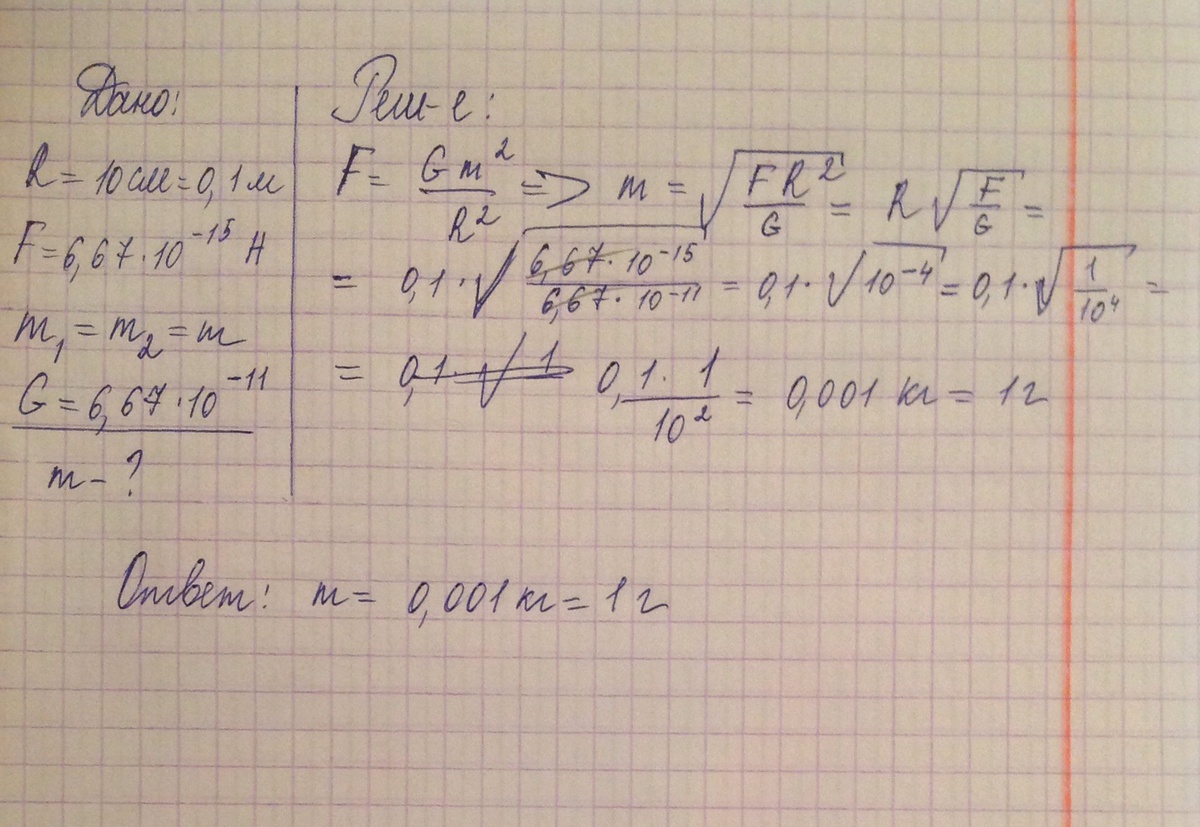 Дано:
R = 10 см = 0,1 м
F = 6,67 · 10⁻¹⁵ Н
m₁ = m₂ = m
G = 6,67 · 10⁻¹¹
m - ?
Реш-е:
F = Gm²/R² => m = √(FR²/G) = R√(F/G) =
= 0,1 · √(6,67 · 10⁻¹⁵/6,67 · 10⁻¹¹) = 0,1 · √10⁻⁴ = 0,1 · √(1/10⁴) =
= 0,1 · √1 0,1 · 1/10² = 0,001 кг = 1 г
Ответ: m = 0,001 кг = 1 г